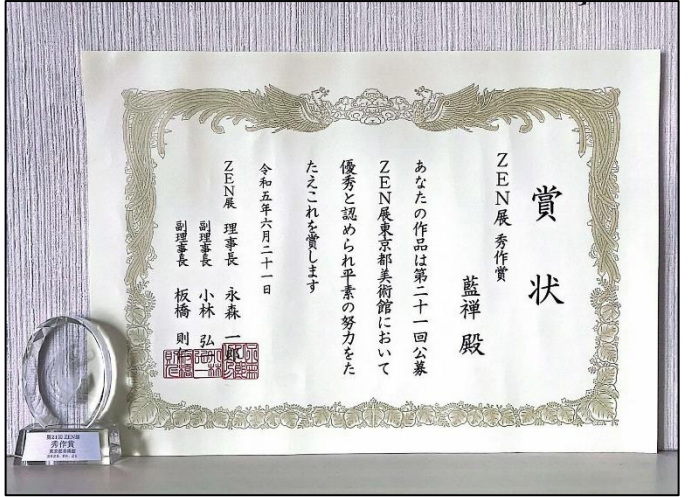 賞状
ZEN展 秀作賞
藍禅 殿
あなたの作品は第二十一回公募
ZEN展東京都美術館において
優秀と認められ平素の努力をた
たえこれを賞します
令和五年六月二十一日
ZEN展 理事長 永森 一郎
副理事長 小林 弘
副理事長 板橋 則
第21回 ZEN展
秀作賞
東京都美術館